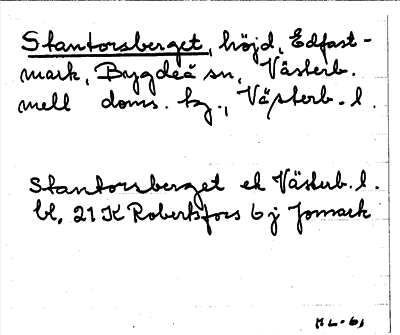 Stantorsberget, höjd, Edfast-
mark, Bygdeå sn, Västerb.
mell doms. kg., Västerb. l.
Stantorsberget ek Västerb. l.
bl. 21 K Robertsfors 6 j Jomark
ML-61